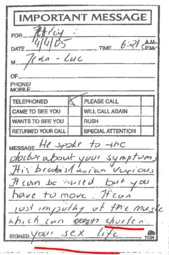 IMPORTANT MESSAGE
FOR
DATE 4/4/05 TIME 6:21 A.M. P.M.
M Jean-Luc
OF
PHONE/
MOBILE
TELEPHONED PLEASE CALL
CAME TO SEE YOU WILL CALL AGAIN
WANTS TO SEE YOU RUSH
RETURNED YOUR CALL SPECIAL ATTENTION
MESSAGE He spoke to the
doctor about your symptoms
It can be but you
have to move. It can
just at the
which can shorten
SIGNED your sex life
1184